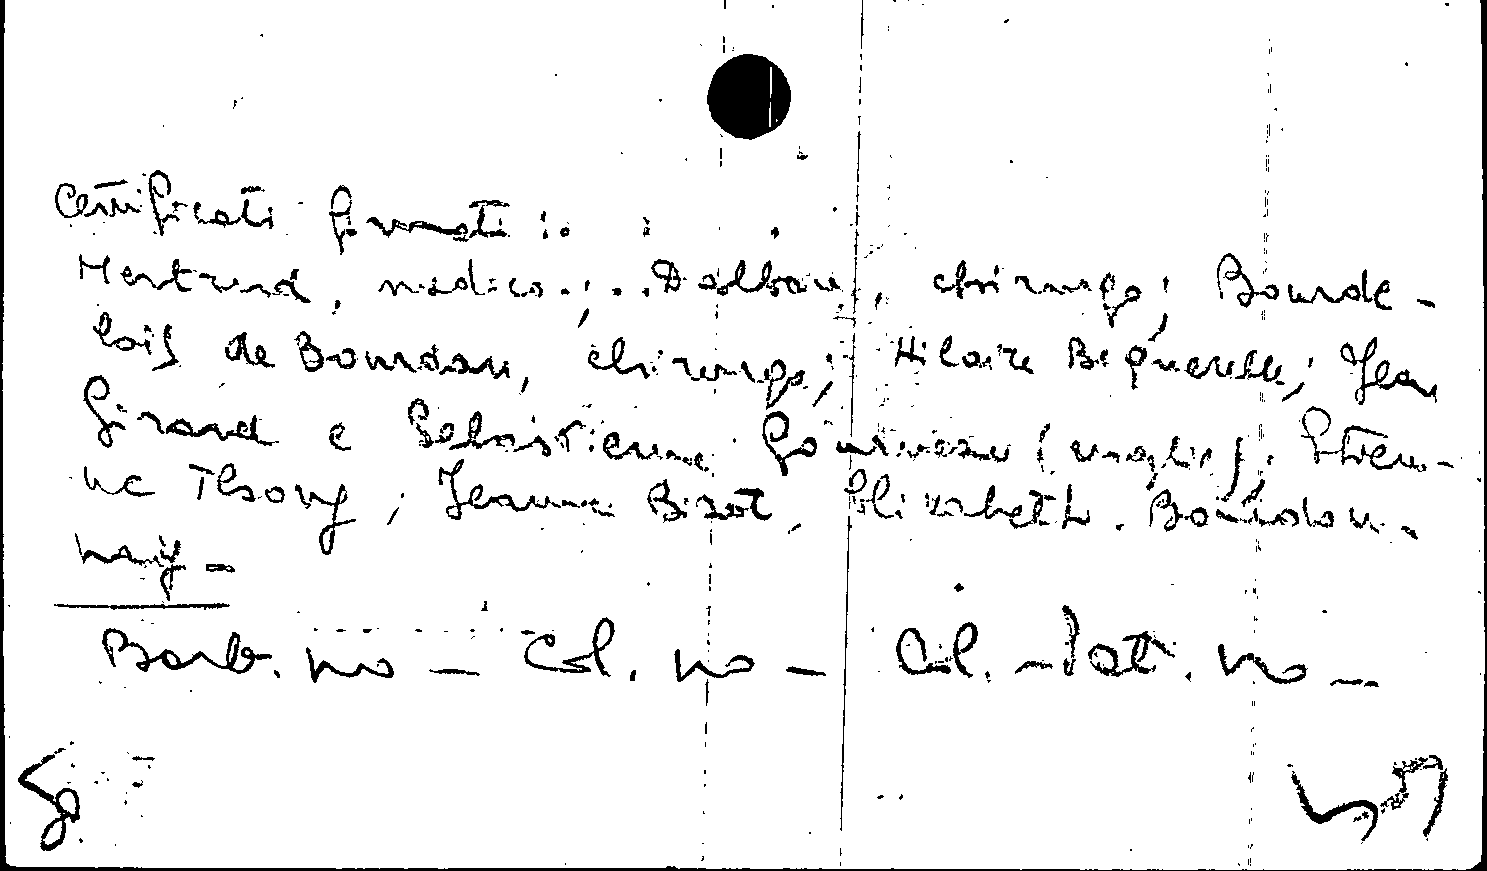 Certificati firmati :
Hertrud, medico ; Dalbau, chirurgo ; Bourde-
lois de Bourdan, chirurgo ; Hilaire Bequerelle ; Jean
Girard e Sebastienne Gouriveau (moglie) ; Etien-
ne Thsony ; Jeanne Bizot, Elizabeth Bourdon-
nay -
Barb. no - Col. no - Col. - Lat. no -